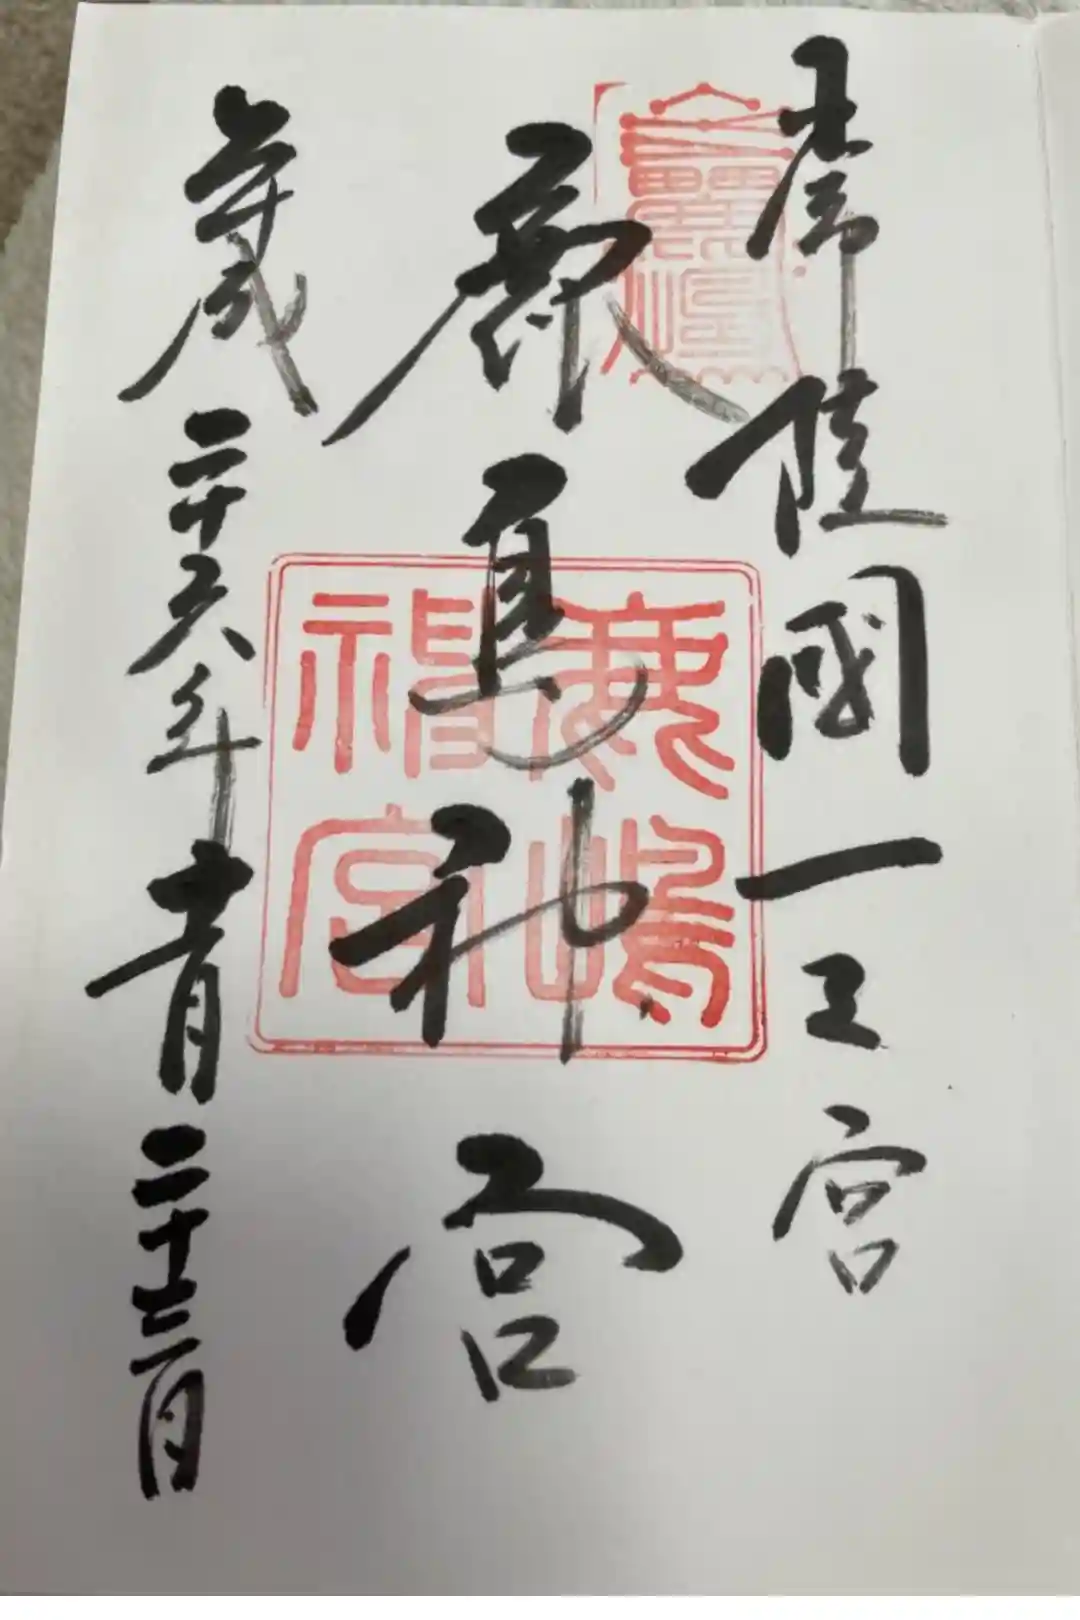 常陸國一之宮
鹿島神宮
平成二十六年十一月二十三日
鹿嶋
神宮